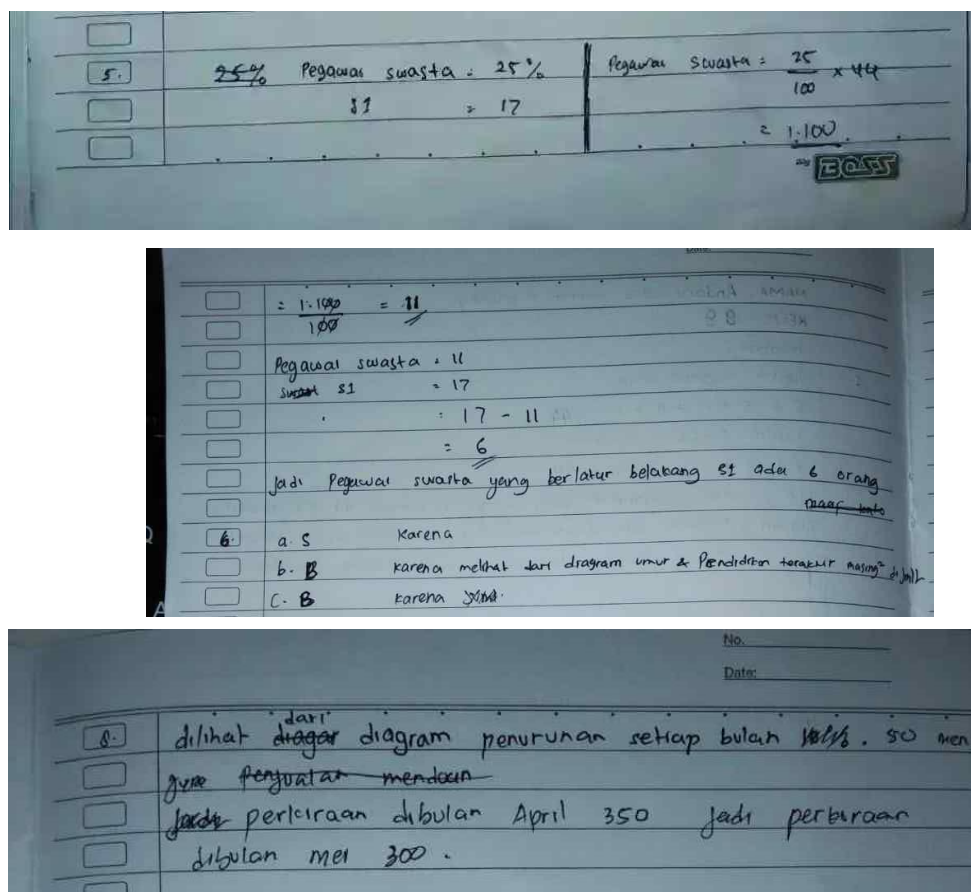 5. 25% Pegawai swasta = 25%
S1 = 17
Pegawai Swasta = 25/100 x 44
= 1.100
BOSS
= 1.100/100 = 11
Pegawai swasta = 11
S1 = 17
= 17 - 11
= 6
Jadi Pegawai swasta yang berlatar belakang S1 ada 6 orang
6. a. S Karena
b. B Karena melihat dari diagram umur & Pendidikan terakhir masing²
C. B Karena
No.
Date:
8. dilihat dari diagram penurunan setiap bulan 50 men
Penjualan mendoan
perkiraan dibulan April 350 Jadi perkiraan
dibulan mei 300.